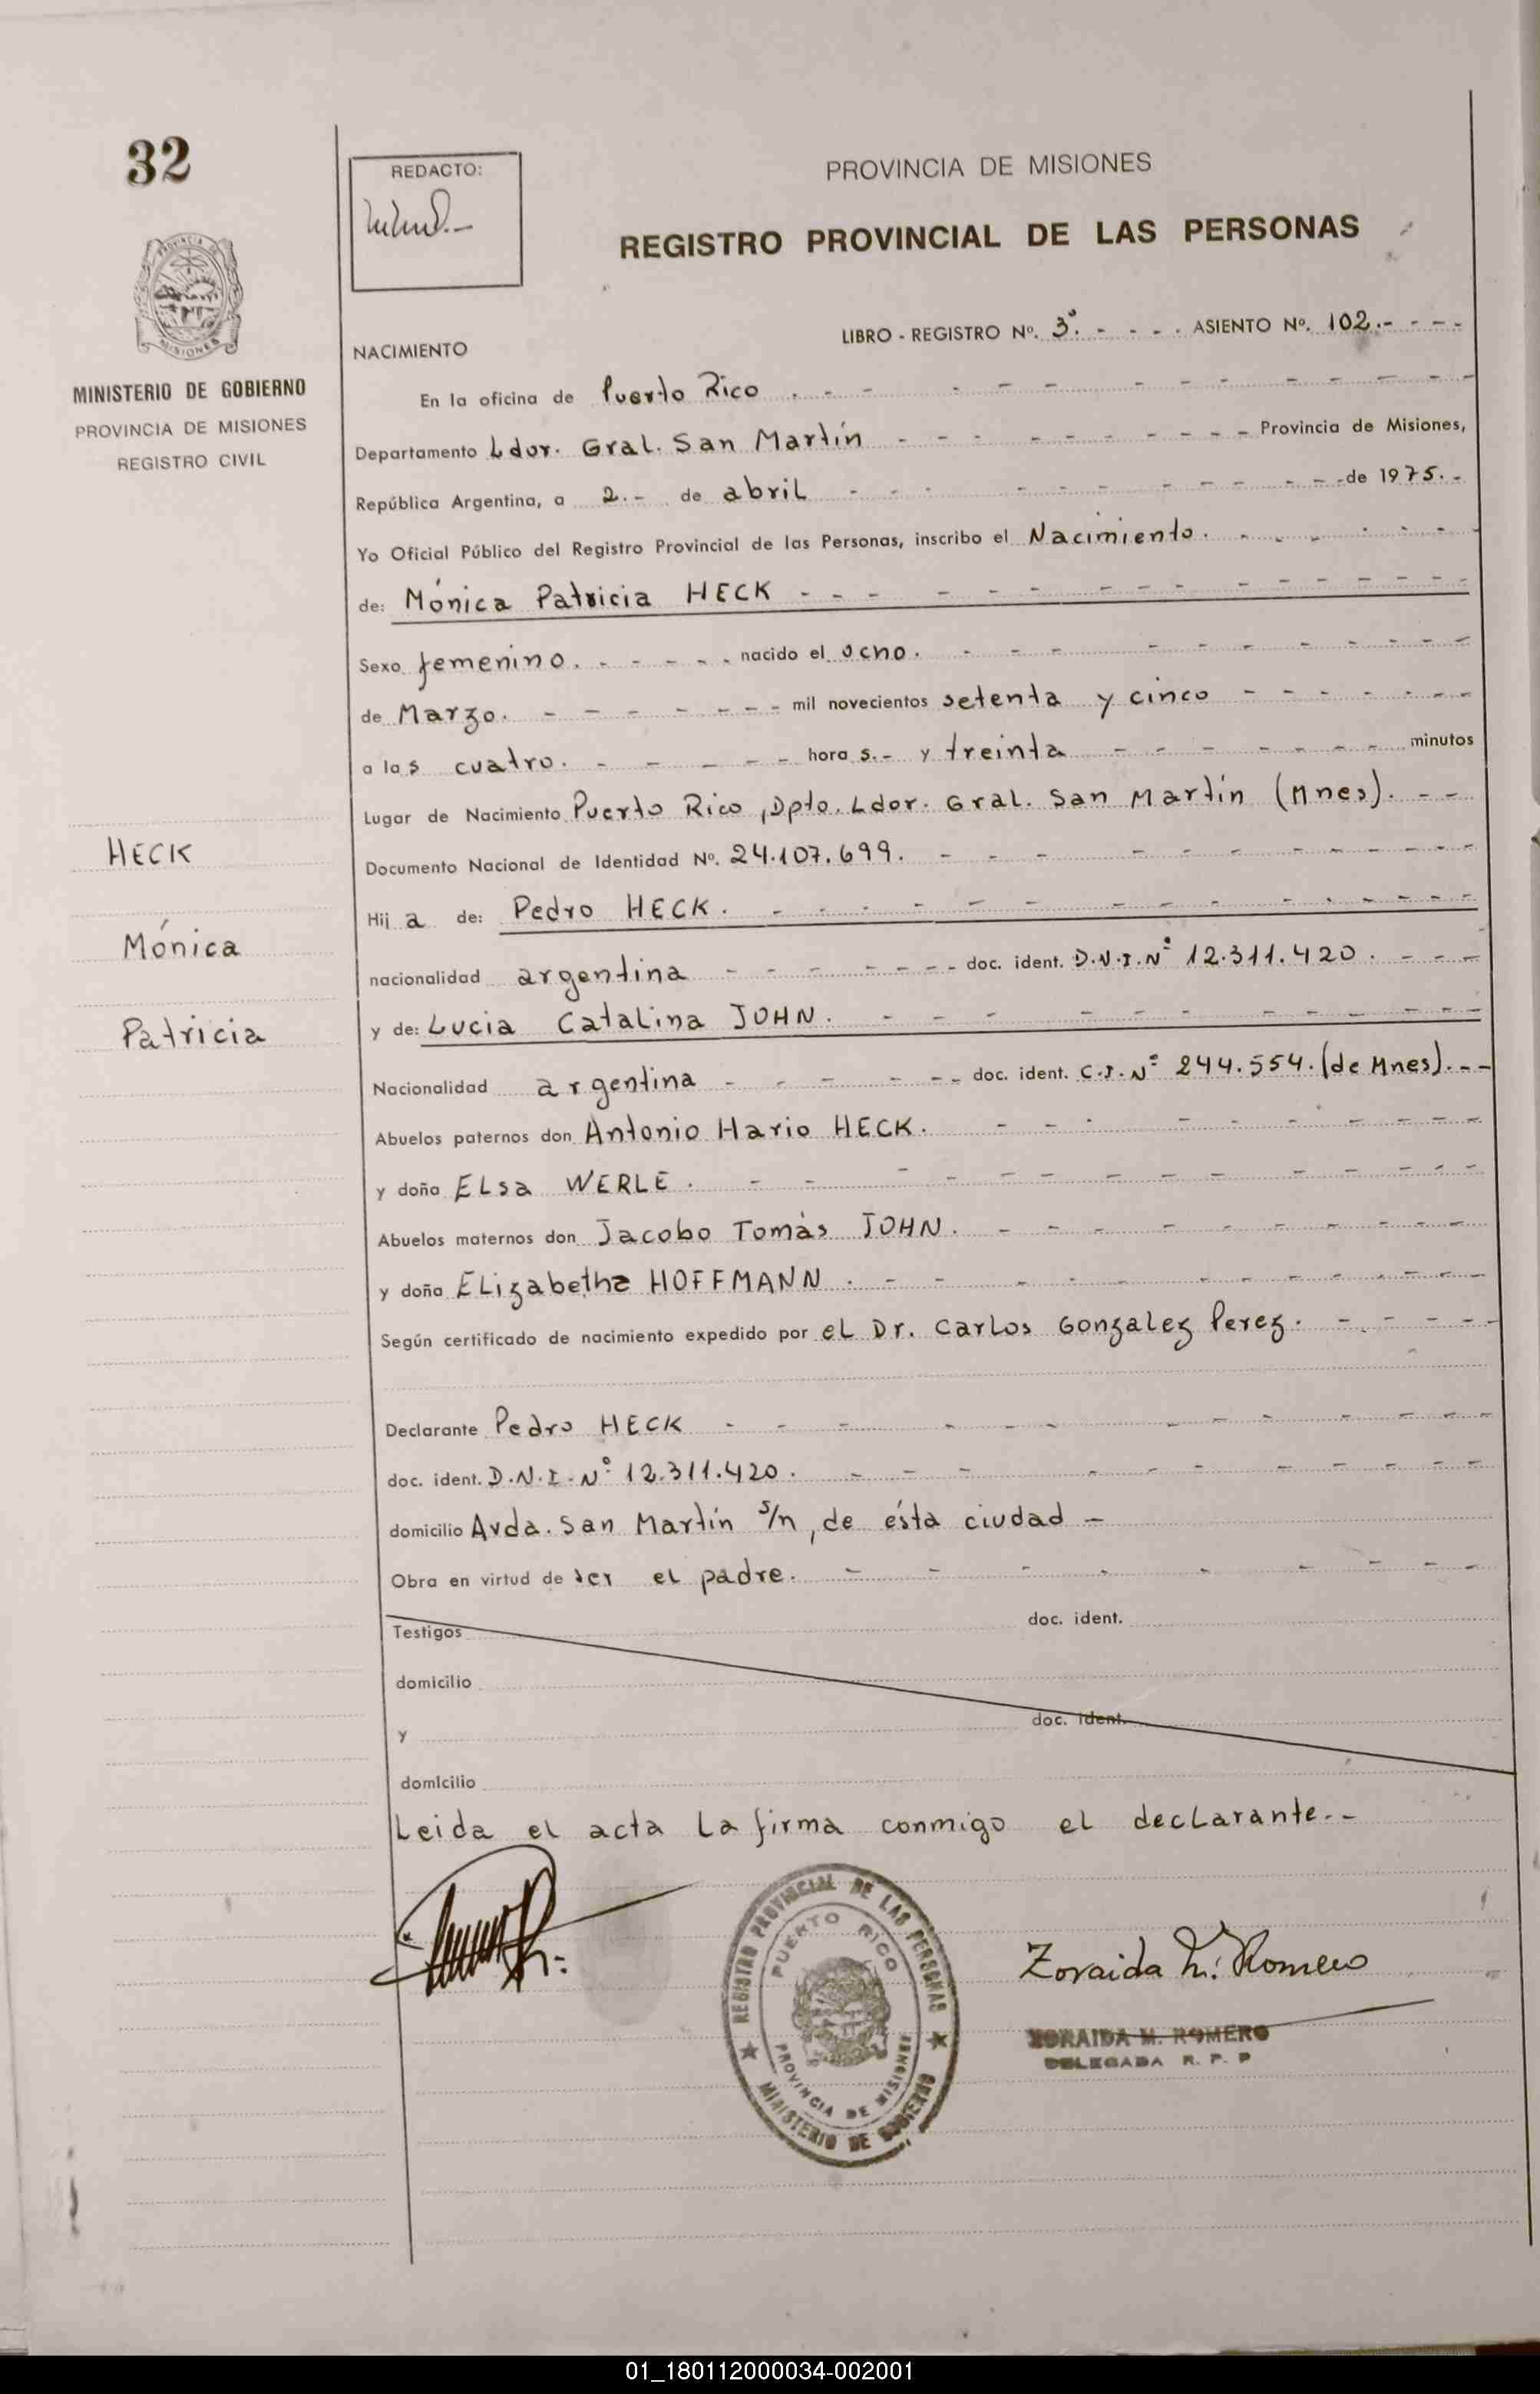 32
REDACTO:
PROVINCIA DE MISIONES
REGISTRO PROVINCIAL DE LAS PERSONAS
PROVINCIA DE
MISIONES
MINISTERIO DE GOBIERNO
PROVINCIA DE MISIONES
REGISTRO CIVIL
LIBRO - REGISTRO Nº. 3º. - - - - ASIENTO Nº. 102.- - - -
NACIMIENTO
En la oficina de Puerto Rico
Departamento Ldor. Gral. San Martín - - - - - - - - - Provincia de Misiones,
República Argentina, a 2.- de abril - - - - - - - - - de 1975.-
Yo Oficial Público del Registro Provincial de las Personas, inscribo el Nacimiento.
de: Mónica Patricia HECK
Sexo femenino. - - - - - nacido el ocho.
de Marzo. - - - - - - - mil novecientos setenta y cinco
a las cuatro. - - - - - hora s.- y treinta - - - - - - - minutos
Lugar de Nacimiento Puerto Rico, Dpto. Ldor. Gral. San Martín (Mnes). - -
Documento Nacional de Identidad Nº. 24.107.699.
Hij a de: Pedro HECK.
nacionalidad argentina - - - - - - doc. ident. D.N.I. Nº 12.311.420. - - -
y de: Lucia Catalina JOHN.
Nacionalidad argentina - - - - - - doc. ident. C.I. Nº 244.554. (de Mnes). - -
Abuelos paternos don Antonio Mario HECK.
y doña Elsa WERLE.
Abuelos maternos don Jacobo Tomás JOHN.
y doña Elizabetha HOFFMANN.
Según certificado de nacimiento expedido por el Dr. Carlos Gonzalez Perez.
Declarante Pedro HECK
doc. ident. D.N.I. Nº 12.311.420.
domicilio Avda. San Martín s/n, de ésta ciudad -
Obra en virtud de ser el padre.
Testigos doc. ident.
domicilio
y doc. ident.
domicilio
Leida el acta la firma conmigo el declarante.-
HECK
Mónica
Patricia
REGISTRO PROVINCIAL DE LAS PERSONAS
PUERTO RICO
PROVINCIA DE MISIONES
MINISTERIO DE GOBIERNO
Zoraida M. Romero
ZORAIDA M. ROMERO
DELEGADA R. P. P
01_180112000034-002001